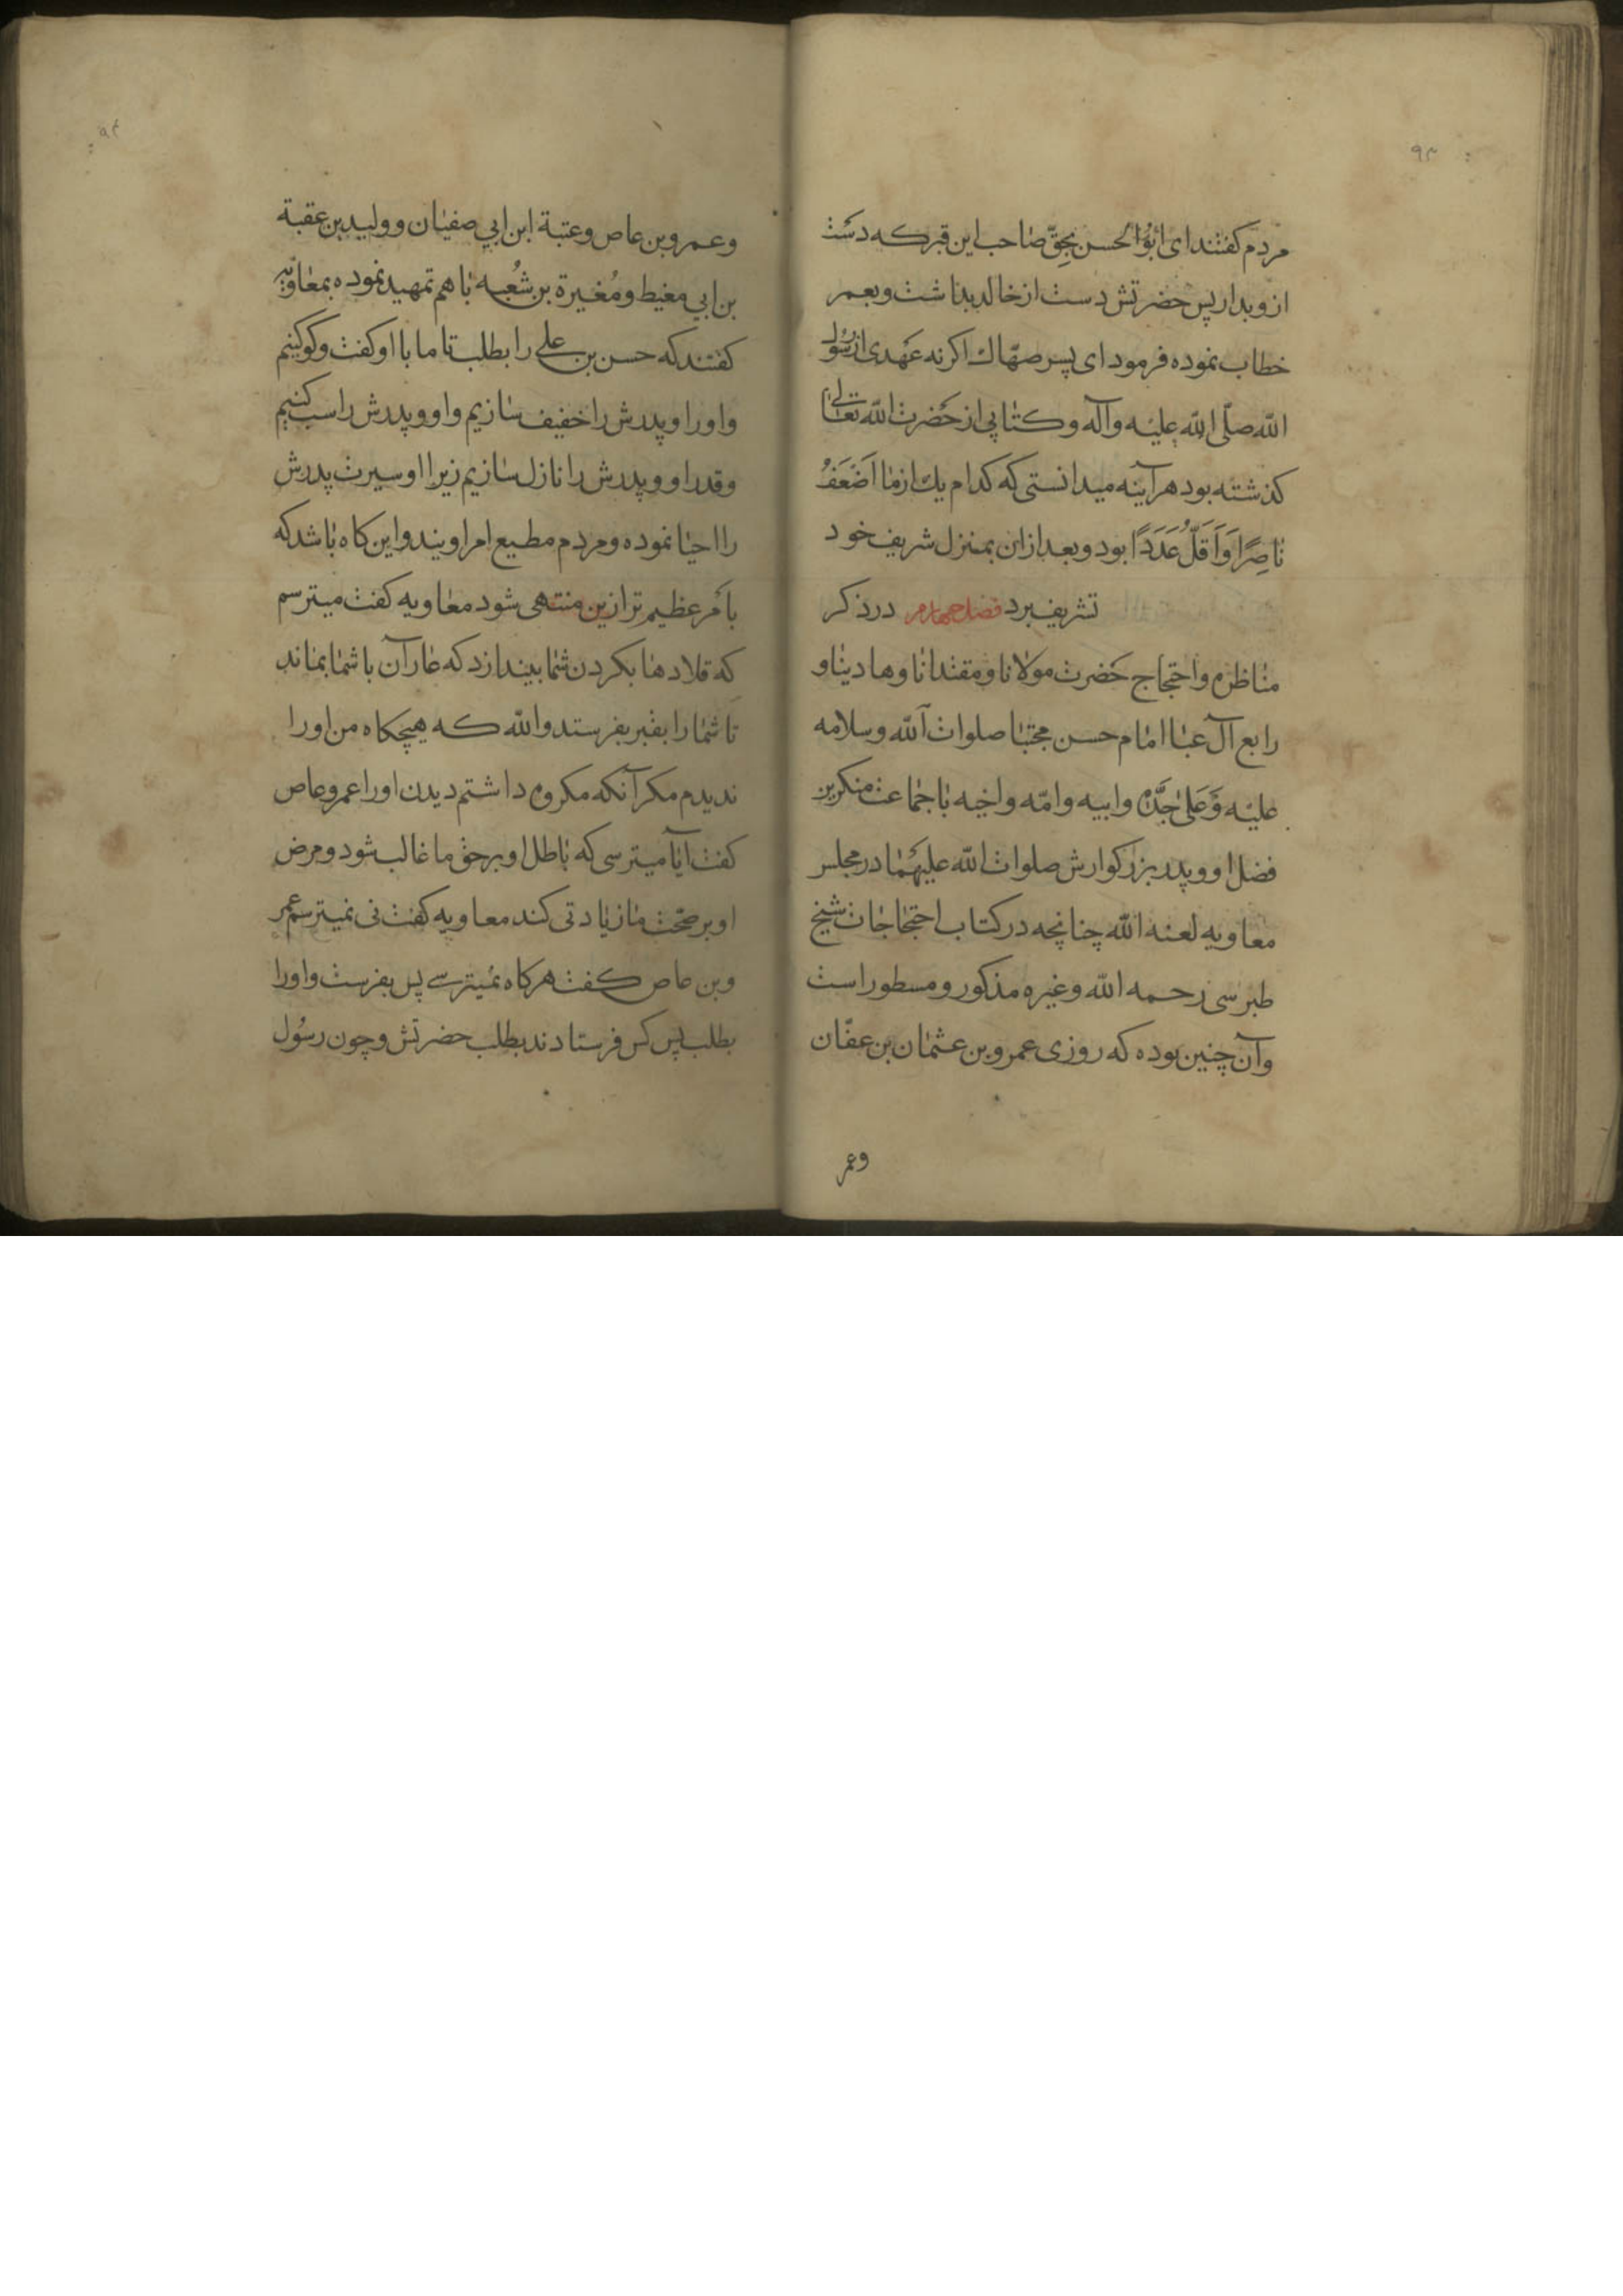 ۹۳
مردم گفتند ای ابوالحسن بحقّ صاحب این قبر که دست
ازو بدار پس حضرتش دست از خالد بداشت و بعمر
خطاب نموده فرمود ای پسر صهّاك اکرنه عَهدی از رسُول
الله صلّی الله علیه وآله و کتابی از حَضرت الله تعالی
کذشته بود هرآینه میدانستی که کدام یك از ما اَضْعَفُ
ناصِرًا وَاَقَلُّ عَدَدًا بود و بعد ازان بمنزل شریف خود
تشریف برد فصل چهارم در ذکر
مناظره واحتجاج حَضرت مولانا و مقتدانا وهادینا و
رابع آل عبا امام حسن مجتبا صلوات الله وسلامه
علیه وَعَلی جَدّه وابیه وامّه واخیه با جماعت منکرین
فضل او و پدر بزرکوارش صلوات الله علیهما در مجلس
معاویه لعنه الله چنانچه در کتاب احتجاجات شیخ
طبرسی رحمه الله وغیره مذکور و مسطور است
وآن چنین بوده که روزی عمرو بن عثمان بن عفّان
وعمر
۹۴
وعمرو بن عاص وعتبة ابن ابی صفیان و ولید بن عقبة
بن ابی مغیط ومُغیرة بن شُعبه با هم تمهید نموده بمعاویه
کفتند که حسن بن علی را بطلب تا ما با او کفت وکو کنیم
واورا و پدرش را خفیف سازیم واو و پدرش را سب کنیم
وقدر او و پدرش را نازل سازیم زیرا او سیرت پدرش
را احیا نموده ومردم مطیع امر اویند واین کاه باشد که
بامر عظیم تر ازین منتهی شود معاویه کفت میترسم
که قلادها بکردن شما بیندازد که عار آن با شما بماند
تا شما را بقبر بفرستد والله که هیچکاه من اورا
ندیدم مکر آنکه مکروه داشتم دیدن اورا عمرو عاص
کفت آیا میترسی که باطل او بر حق ما غالب شود ومرض
او بر صحّت ما زیادتی کند معاویه کفت نی نمیترسم عمر
وبن عاص کفت هرکاه نمیترسی پس بفرست واورا
بطلب پس کس فرستادند بطلب حضرتش و چون رسُول